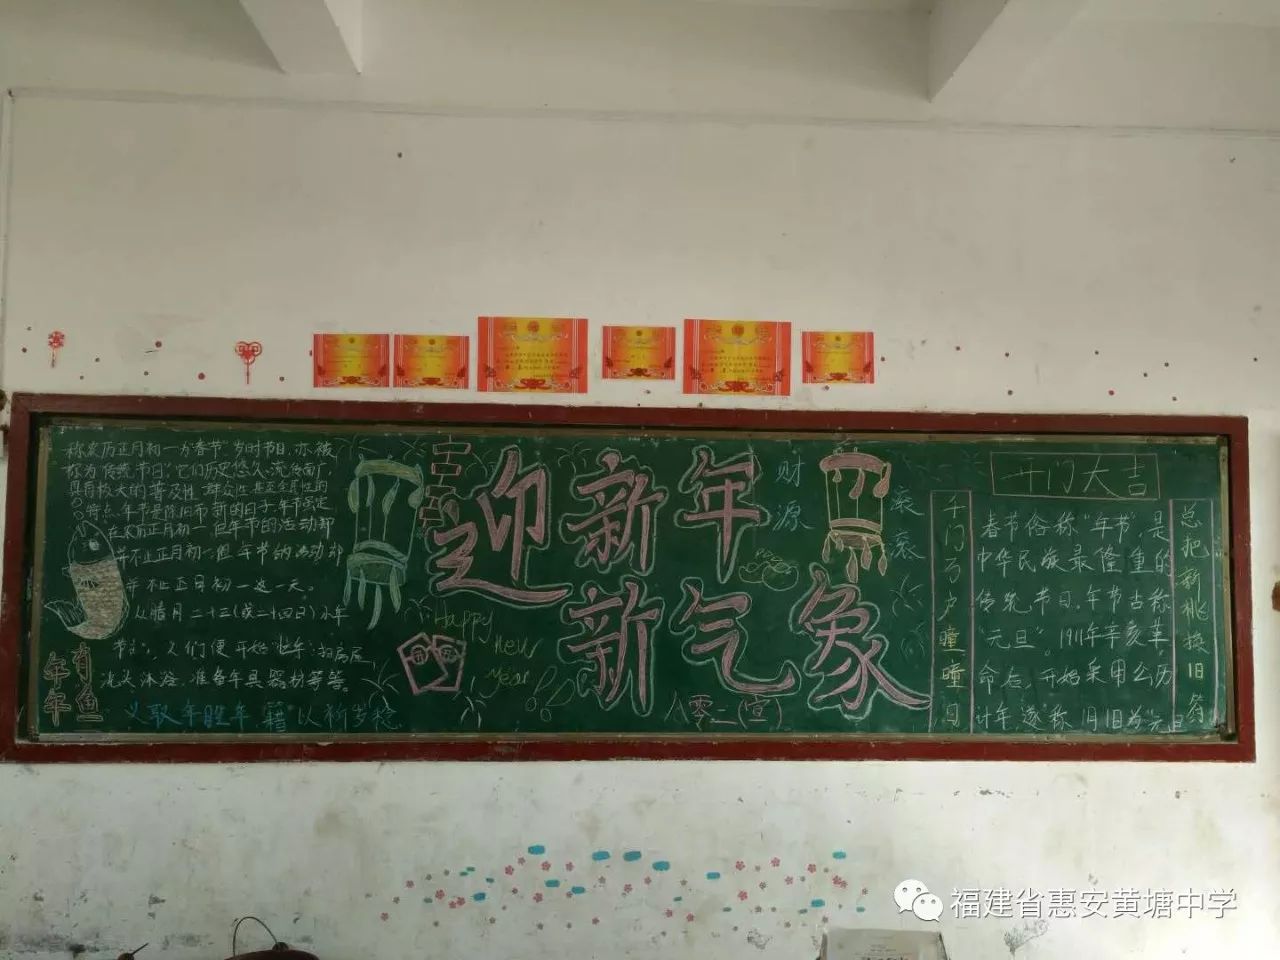 称农历正月初一为春节"岁时节日,亦被
称为传统节日"它们历史悠久、流传面广,
具有极大的普及性、群众性、甚至全民性的
特点。年节是除旧布新的日子年节虽定
在农历正月初一但年节的活动却
并不止正月初一但年节的活动却
并不止正月初一这一天。
从腊月二十三(或二十四日)小年
节起,人们便开始"忙年":扫房屋、
洗头沐浴、准备年具器材等等。
年年
有鱼
迎新年
新气象
Happy
New
year
财源
滚滚
八零二(宣)
千门万户曈曈日
开门大吉
春节俗称"年节",是
中华民族最隆重的
传统节日。年节古称
"元旦"。1911年辛亥革
命后,开始采用公历
计年,遂称1月1日为"元旦
总把新桃换旧符
福建省惠安黄塘中学